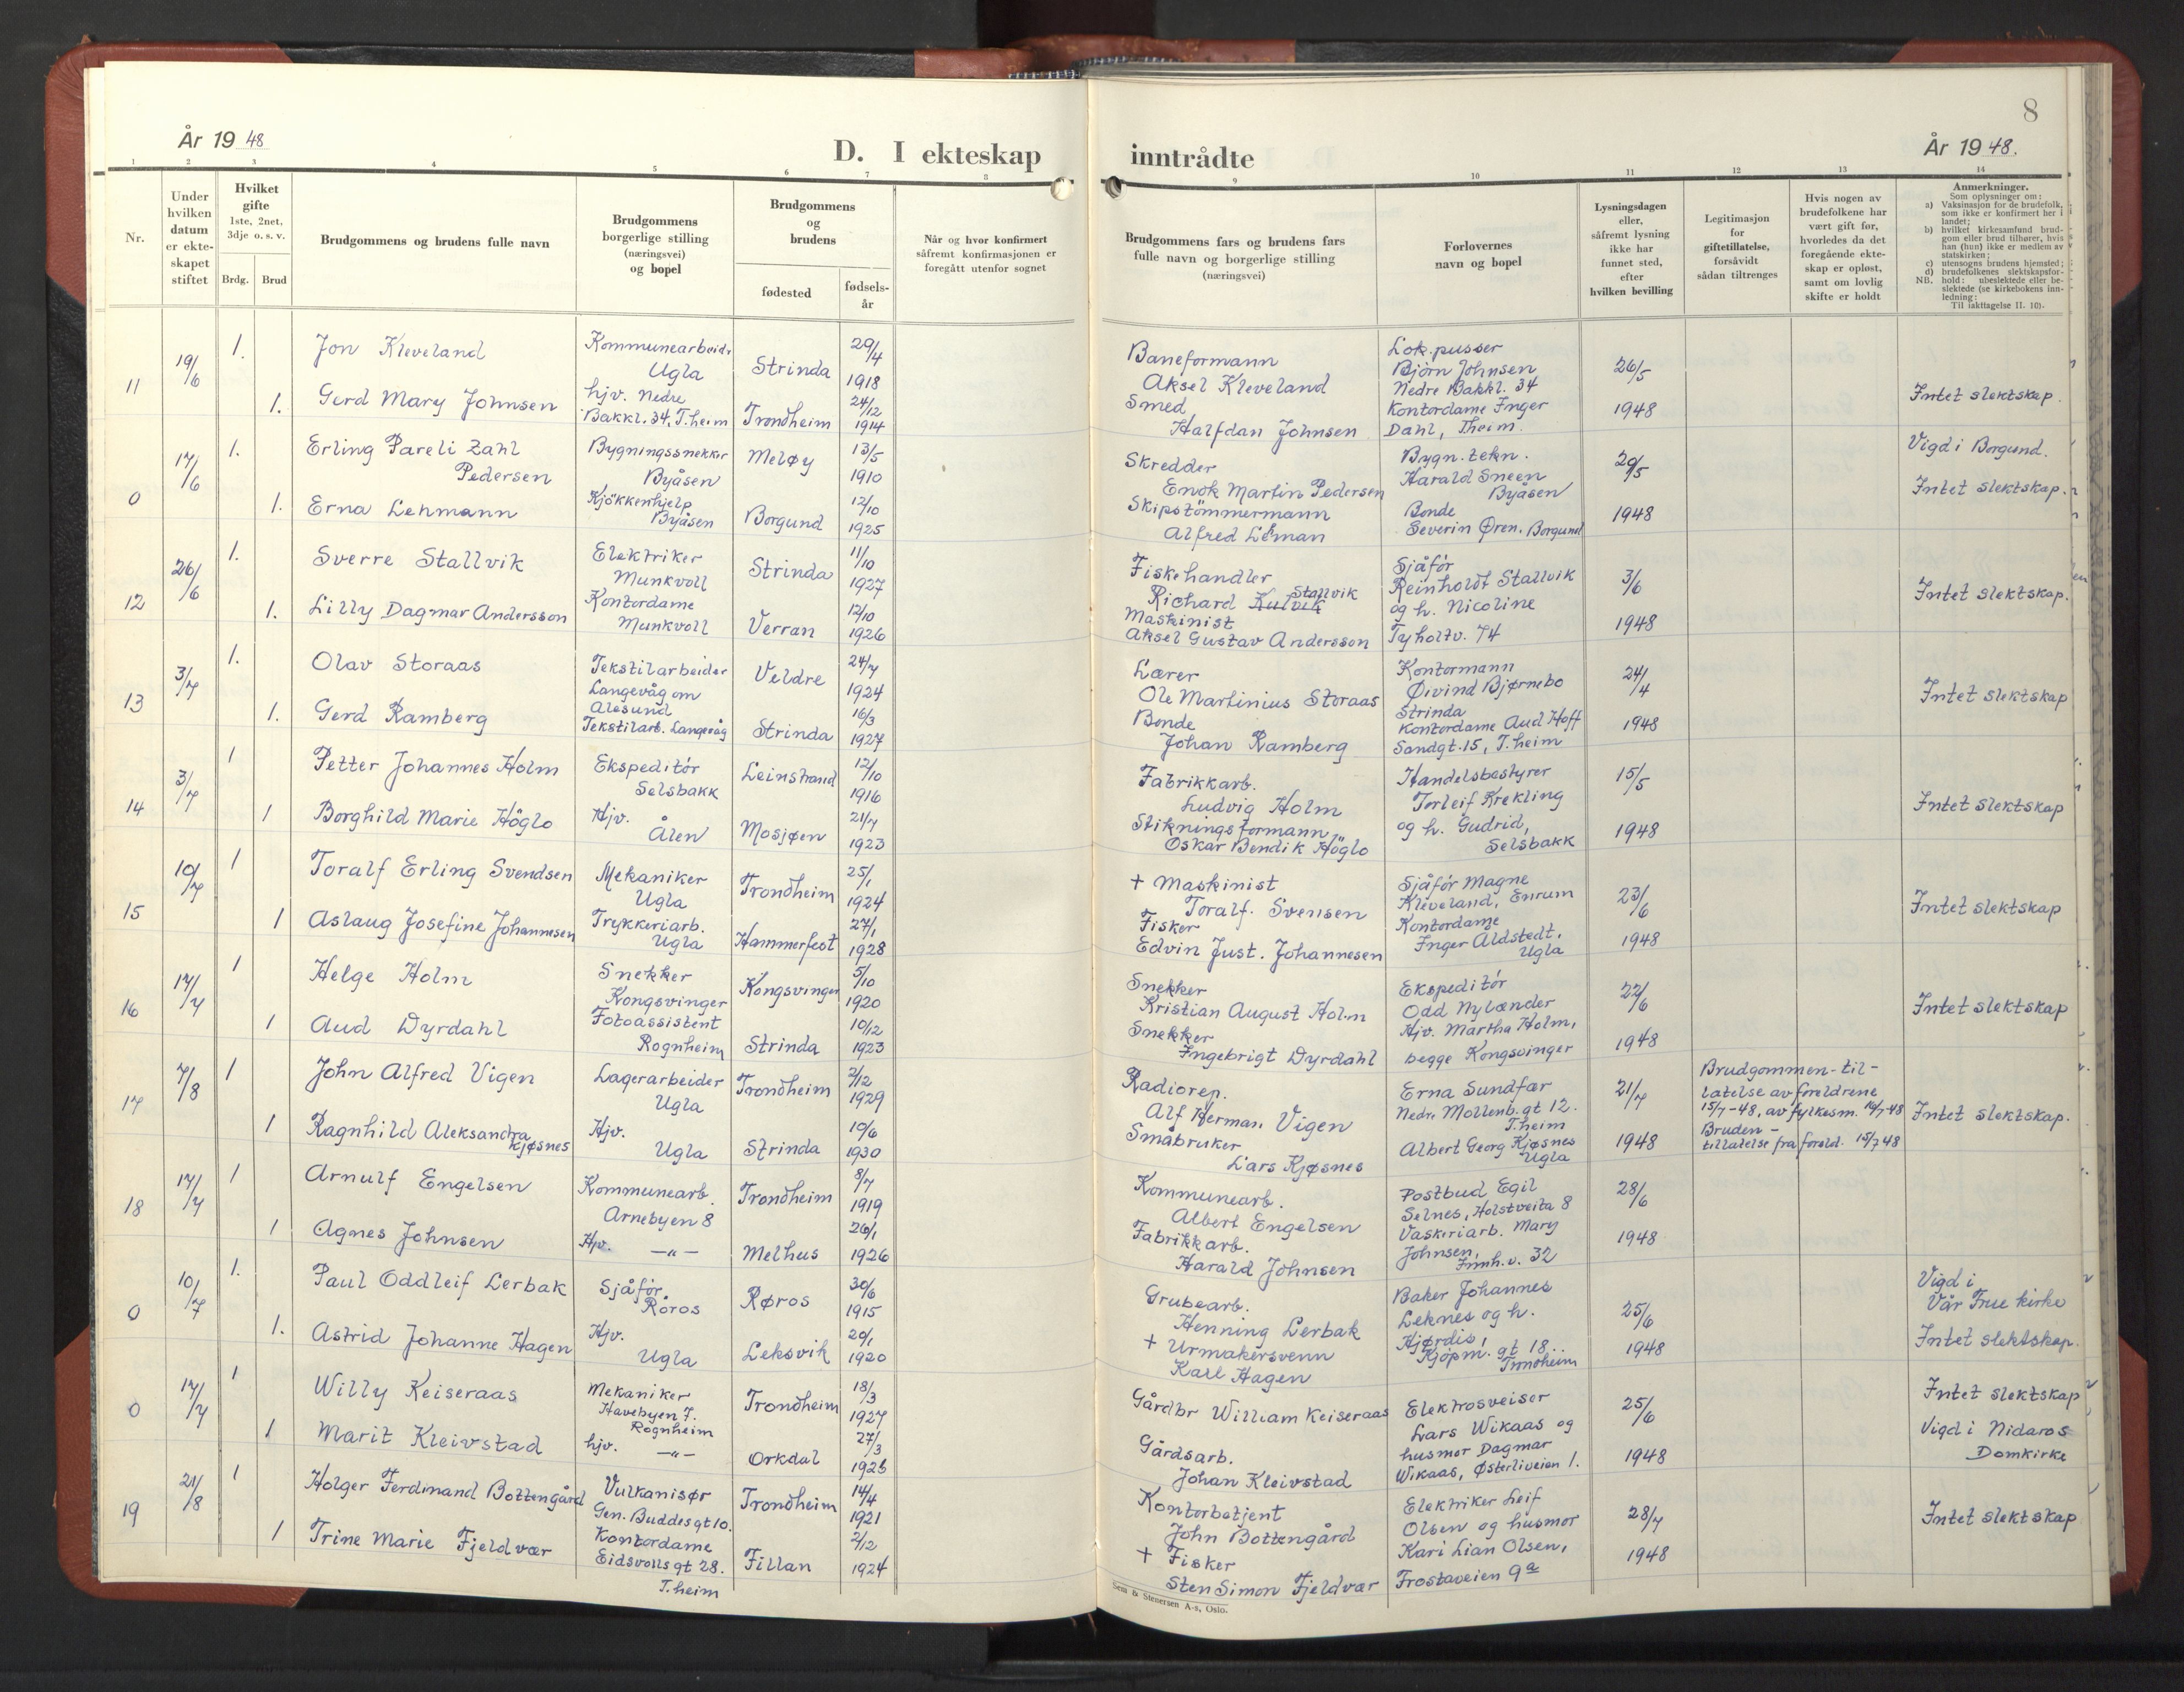 8
År 19 48
D. I ekteskap inntrådte
År 19 48.
1 2 3 4 5 6 7 8 9 10 11 12 13 14
Nr.
Under hvilken datum er ekteskapet stiftet
Hvilket gifte
1ste, 2net, 3dje o. s. v.
Brdg. Brud
Brudgommens og brudens fulle navn
Brudgommens borgerlige stilling (næringsvei) og bopel
Brudgommens og brudens
fødested
fødsels-år
Når og hvor konfirmert såfremt konfirmasjonen er foregått utenfor sognet
Brudgommens fars og brudens fars fulle navn og borgerlige stilling (næringsvei)
Forlovernes navn og bopel
Lysningsdagen eller, såfremt lysning ikke har funnet sted, efter hvilken bevilling
Legitimasjon for giftetillatelse, forsåvidt sådan tiltrenges
Hvis nogen av brudefolkene har vært gift før, hvorledes da det foregående ekteskap er opløst, samt om lovlig skifte er holdt
Anmerkninger.
Som oplysninger om:
a) Vaksinasjon for de brudefolk, som ikke er konfirmert her i landet;
b) hvilket kirkesamfund brudgom eller brud tilhører, hvis han (hun) ikke er medlem av statskirken;
c) utensogns brudens hjemsted;
d) brudefolkenes slektskapsforhold: ubeslektede eller beslektede (se kirkebokens innledning:
NB. Til iakttagelse II. 10).
11 19/6 1. Jon Kleveland Kommunearbeidr Ugla Strinda 29/4 1918
Baneformann Aksel Kleveland
Lok.pusser Bjørn Johnsen Nedre Bakkl. 34
26/5 1948
1. Gerd Mary Johnsen hjv. Nedre Bakkl. 34, T.heim Trondheim 24/12 1914
Smed Halfdan Johnsen
Kontordame Inger Dahl, Theim.
Intet slektskap.
0 17/6 1. Erling Pareli Zahl Pedersen Bygningssnekker Byåsen Meløy 13/5 1910
Skredder Enok Martin Pedersen
Bygn.tekn. Harald Sneen Byåsen
29/5 1948
Vigd i Borgund.
1. Erna Lehmann Kjökkenhjelp Byåsen Borgund 12/10 1925
Skipstömmermann Alfred Léman
Bonde Severin Øren. Borgund
Intet slektskap.
12 26/6 1. Sverre Stallvik Elektriker Munkvoll Strinda 11/10 1927
Fiskehandler Richard Kulvik Stallvik
Sjåför Reinholdt Stallvik
3/6 1948
1. Lilly Dagmar Andersson Kontordame Munkvoll Verran 12/10 1926
Maskinist Aksel Gustav Andersson
og h. Nicoline Tyholtv. 74
Intet slektskap.
13 3/7 1. Olav Storaas Tekstilarbeider Langevåg om Ålesund Veldre 24/7 1924
Lærer Ole Martinius Storaas
Kontormann Øivind Bjørnebo Strinda
24/4 1948
1. Gerd Ramberg Tekstilarb. Langevåg Strinda 16/3 1927
Bonde Johan Ramberg
Kontordame Aud Hoff Sandgt. 15, T.heim
Intet slektskap
14 3/7 1 Petter Johannes Holm Ekspeditör Selsbakk Leinstrand 12/10 1916
Fabrikkarb. Ludvig Holm
Handelsbestyrer Torleif Krekling
15/5 1948
1 Borghild Marie Höglo Hjv. Ålen Mosjøen 21/7 1923
Stikningsformann Oskar Bendik Höglo
og h. Gudrid, Selsbakk
Intet slektskap
15 10/7 1 Toralf Erling Svendsen Mekaniker Ugla Trondheim 25/1 1924
+ Maskinist Toralf. Svensen
Sjåför Magne Kleveland, Enrum
23/6 1948
1 Aslaug Josefine Johannesen Trykkeriarb. Ugla Hammerfest 27/1 1928
Fisker Edvin Just. Johannesen
Kontordame Inger Aldstedt. Ugla
Intet slektskap
16 17/7 1 Helge Holm Snekker Kongsvinger Kongsvinger 5/10 1920
Snekker Kristian August Holm
Ekspeditör Odd Nylænder
22/6 1948
1 Aud Dyrdahl Fotoassistent Rognheim Strinda 10/12 1923
Snekker Ingebrigt Dyrdahl
Hjv. Martha Holm, begge Kongsvinger
Intet slektskap
17 7/8 1 John Alfred Vigen Lagerarbeider Ugla Trondheim 2/12 1929
Radiorep. Alf Herman Vigen
Erna Sundfær Nedre Mollenb.gt 12. T.heim
21/7 1948
Brudgommen - tillatelse av foreldrene 15/7-48, av fylkesm. 16/7-48
1 Ragnhild Aleksandra Kjøsnes Hjv. Ugla Strinda 10/6 1930
Småbruker Lars Kjøsnes
Albert Georg Kjøsnes Ugla
Bruden - tillatelse fra foreld. 15/7 48
Intet slektskap.
18 17/7 1 Arnulf Engelsen Kommunearb. Arnebyen 8 Trondheim 8/7 1919
Kommunearb. Albert Engelsen
Postbud Egil Selnes, Holstveita 8
28/6 1948
1 Agnes Johnsen Hjv. —"— Melhus 26/1 1926
Fabrikkarb. Harald Johnsen
Vaskeriarb. Mary Johnsen, Innh.v. 32
0 10/7 1. Paul Oddleif Lerbak Sjåför. Röros Røros 30/6 1915
Grubearb. Henning Lerbak
Baker Johannes Leknes og h.
25/6 1948
Vigd i Vår Frue kirke
1. Astrid Johanne Hagen Hjv. Ugla Leksvik 20/1 1920
+ Urmakersvenn Karl Hagen
Hjørdis, Kjøpm. gt 18.. Trondheim
Intet slektskap.
0 17/7 1 Willy Keiseraas Mekaniker Havebyen 7. Rognheim Trondheim 18/3 1927
Gårdbr William Keiseraas
Elektrosveiser Lars Wikaas og
25/6 1948
Intet slektskap
1 Marit Kleivstad hjv. —"— Orkdal 27/3
Gårdsarb. Johan Kleivstad
husmor Dagmar Wikaas, Østerliveien 1.
Vigd i Nidaros Domkirke
19 21/8 1 Holger Ferdinand Bottengård Vulkanisør Gen. Buddesgt 10. Trondheim 14/4 1921
Kontorbetjent John Bottengård
Elektriker Leif Olsen og husmor
28/7 1948
Intet slektskap
1 Trine Marie Fjeldvær Kontordame Eidsvollsgt 28. T.heim Fillan 2/12 1924
+ Fisker Sten Simon Fjeldvær
Kari Lian Olsen, Frostaveien 9a
Sem & Stenersen A-s, Oslo.